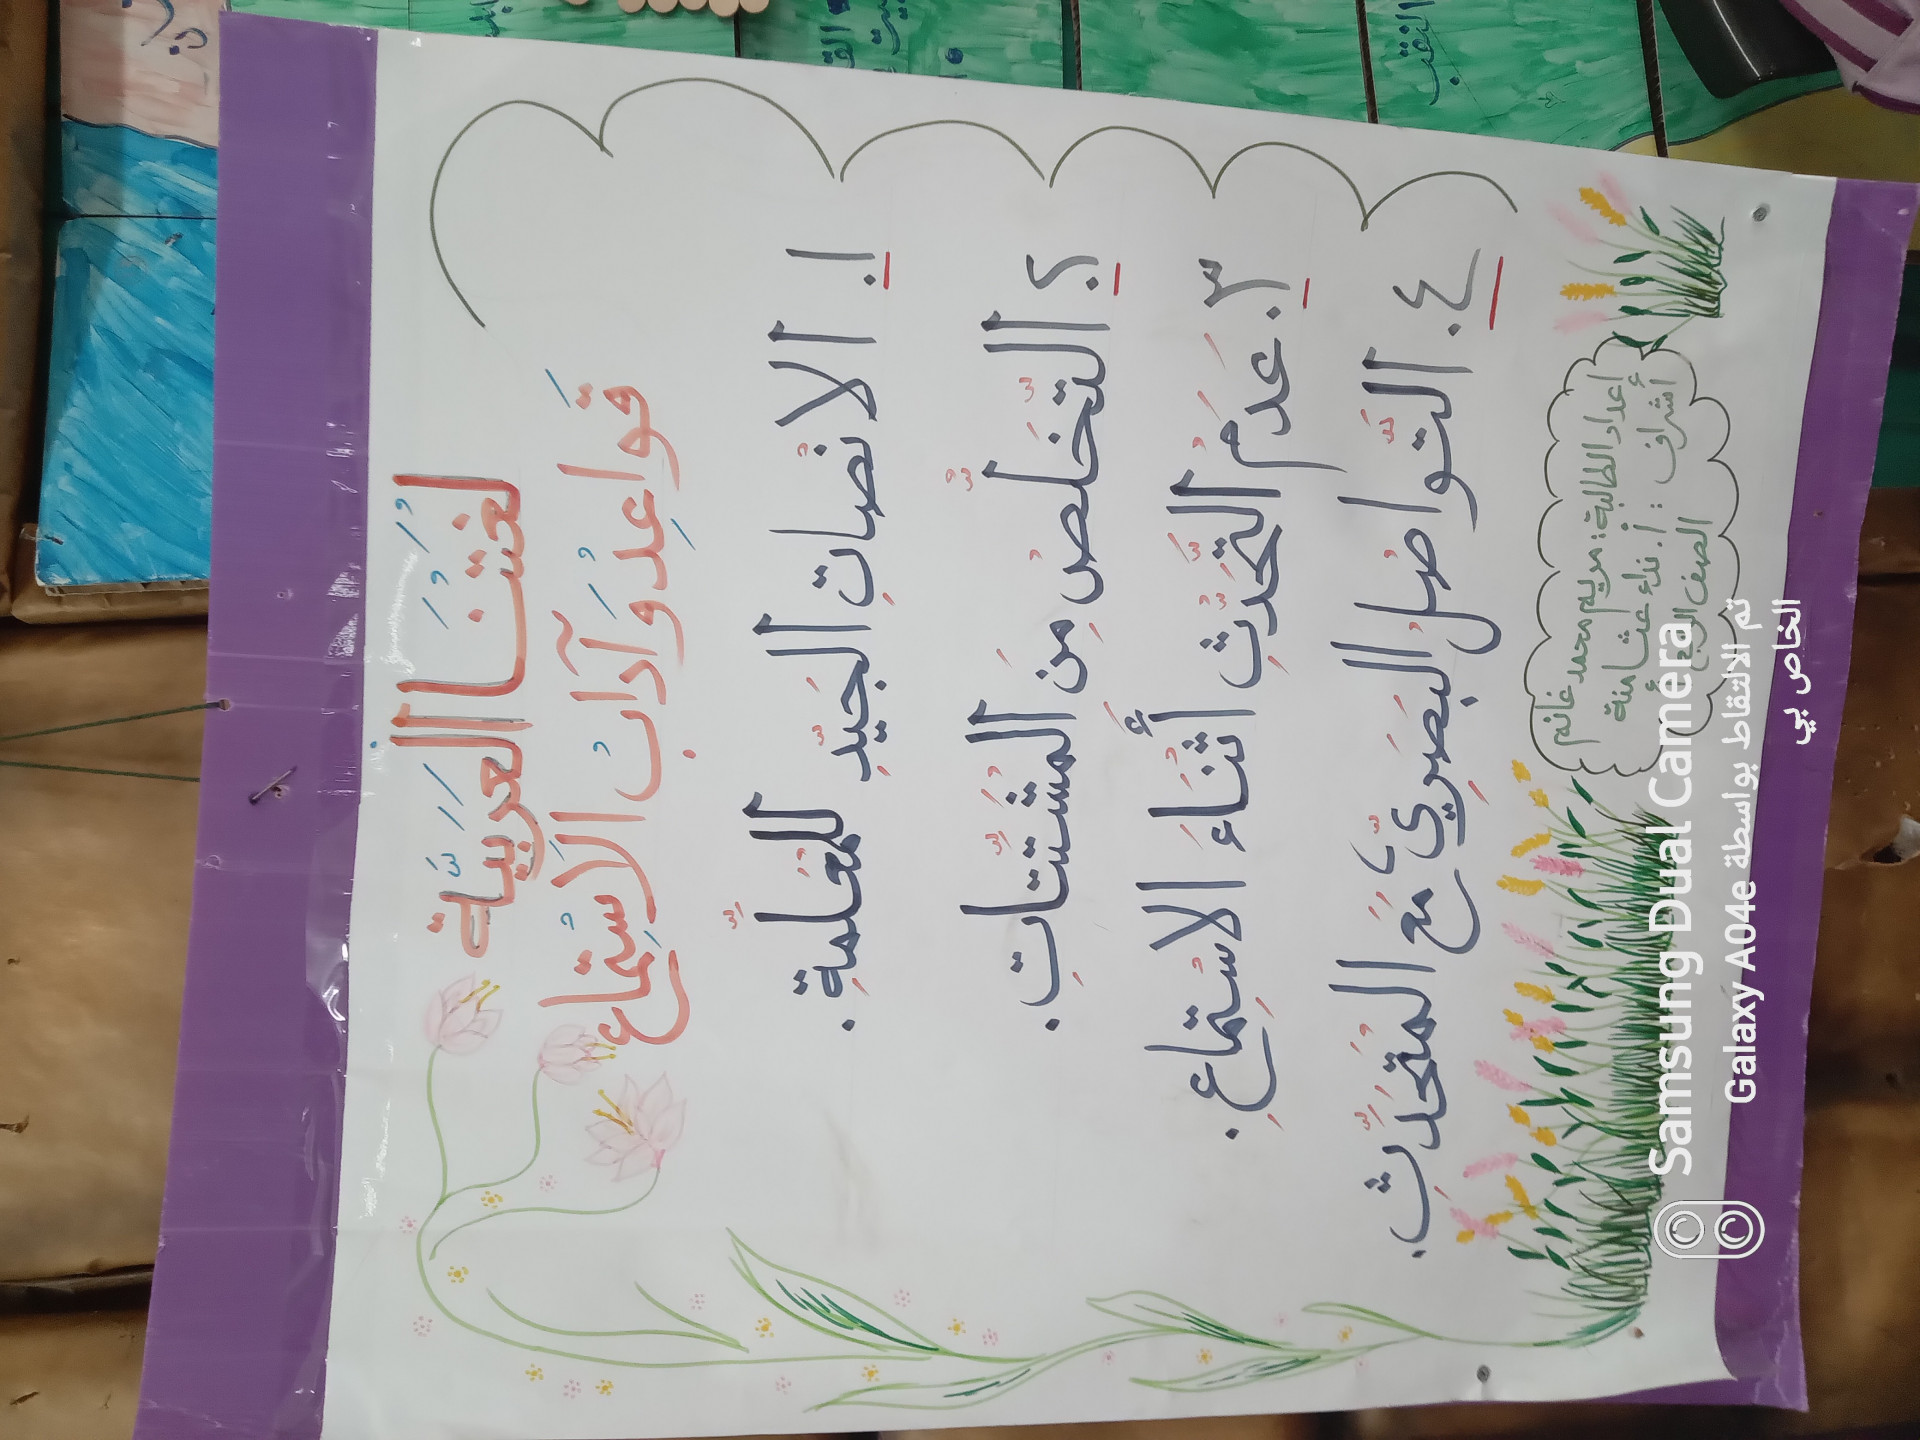 لُغَتُنَا العَرَبيَّة
قَواعِدُ وَآدَابُ الاَسْتِماع
١. الانْصاتِ الجَيّدِ للمُعَلّمَةِ.
٢. التَّخَلُّصْ مِنَ المُشَتّتَاتِ.
٣. عَدَمُ التَّحَدّثِ أَثْنَاءَ الاسْتِماعِ.
٤. التَّواصُلُ البَصَرِيّ مَعَ المُتَحَدِّثِ.
إعداد الطالبة: مريم محمد غانم
أشراف: أ. نداء عثامنة
الصف الرابع أ
Samsung Dual Camera
تم الالتقاط بواسطة Galaxy A04e
الخاص بي
النقب